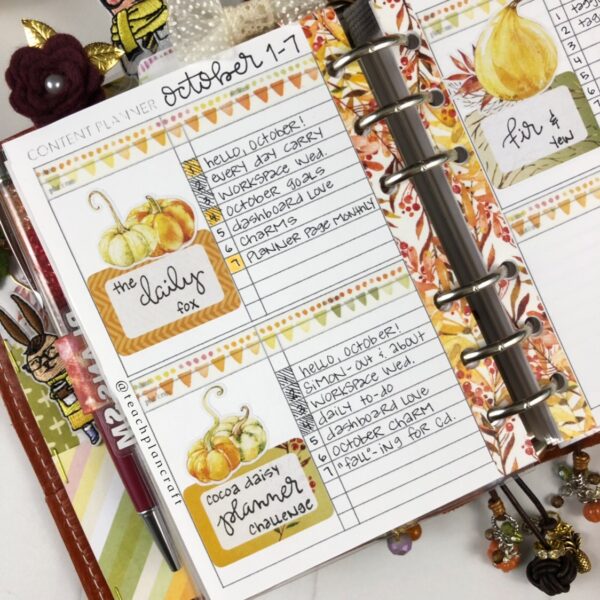 CONTENT PLANNER
October 1-7
hello, October!
every day carry
workspace wed.
October goals
5 dashboard love
6 charms
7 planner page monthly
the daily fox
hello, October!
Simon-out & about
workspace wed.
daily to-do
5 dashboard love
6 October charm
7 "fall"-ing for cd.
cocoa daisy
planner
challenge
@teachplancraft
fir &
yew
1
2
3
4
5
6